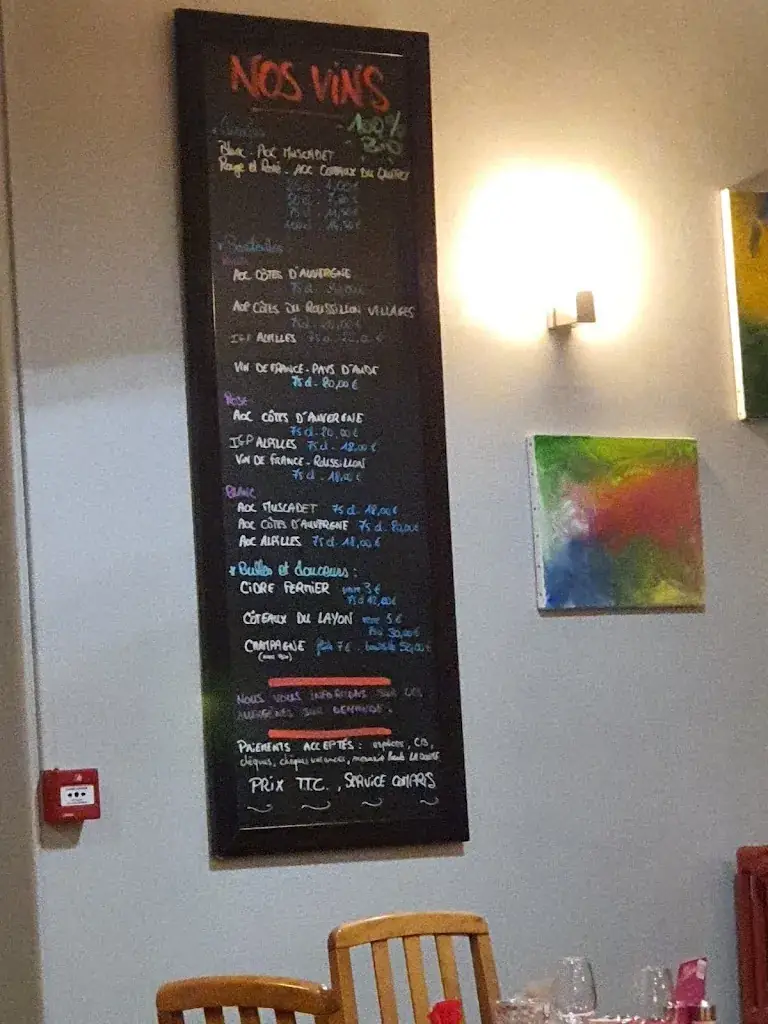 NOS VINS
- 100%
BIO
Blanc - AOC MUSCADET
Rouge et Rosé - AOC COTEAUX DU
25 cl - 4,00€
50 cl - 7,50€
75 cl - 11,50€
100 cl - 14,50€
* Bouteilles
AOC CÔTES D'AUVERGNE
75 cl -
AOP CÔTES DU ROUSSILLON VILLAGES
75 cl -
IGP ALPILLES 75 cl -
VIN DE FRANCE - PAYS D'AUDE
75 cl - 20,00 €
ROSE
AOC CÔTES D'AUVERGNE
75 cl - 20,00 €
IGP ALPILLES 75 cl - 18,00 €
VIN DE FRANCE - ROUSSILLON
75 cl - 18,00 €
BLANC
AOC MUSCADET 75 cl - 18,00 €
AOC CÔTES D'AUVERGNE 75 cl - 20,00 €
AOC ALPILLES 75 cl - 18,00 €
* Bulles et douceurs :
CIDRE FERMIER verre 3 €
75 cl 12,00 €
CÔTEAUX DU LAYON verre 5 €
30,00 €
CHAMPAGNE flûte 7 € - bouteille 50,00 €
NOUS VOUS INFORMONS SUR LES
ALLERGÈNES SUR DEMANDE.
PAIEMENTS ACCEPTÉS : espèces, CB,
chèques, chèques vacances, monnaie locale LA DOUME
PRIX TTC., SERVICE COMPRIS